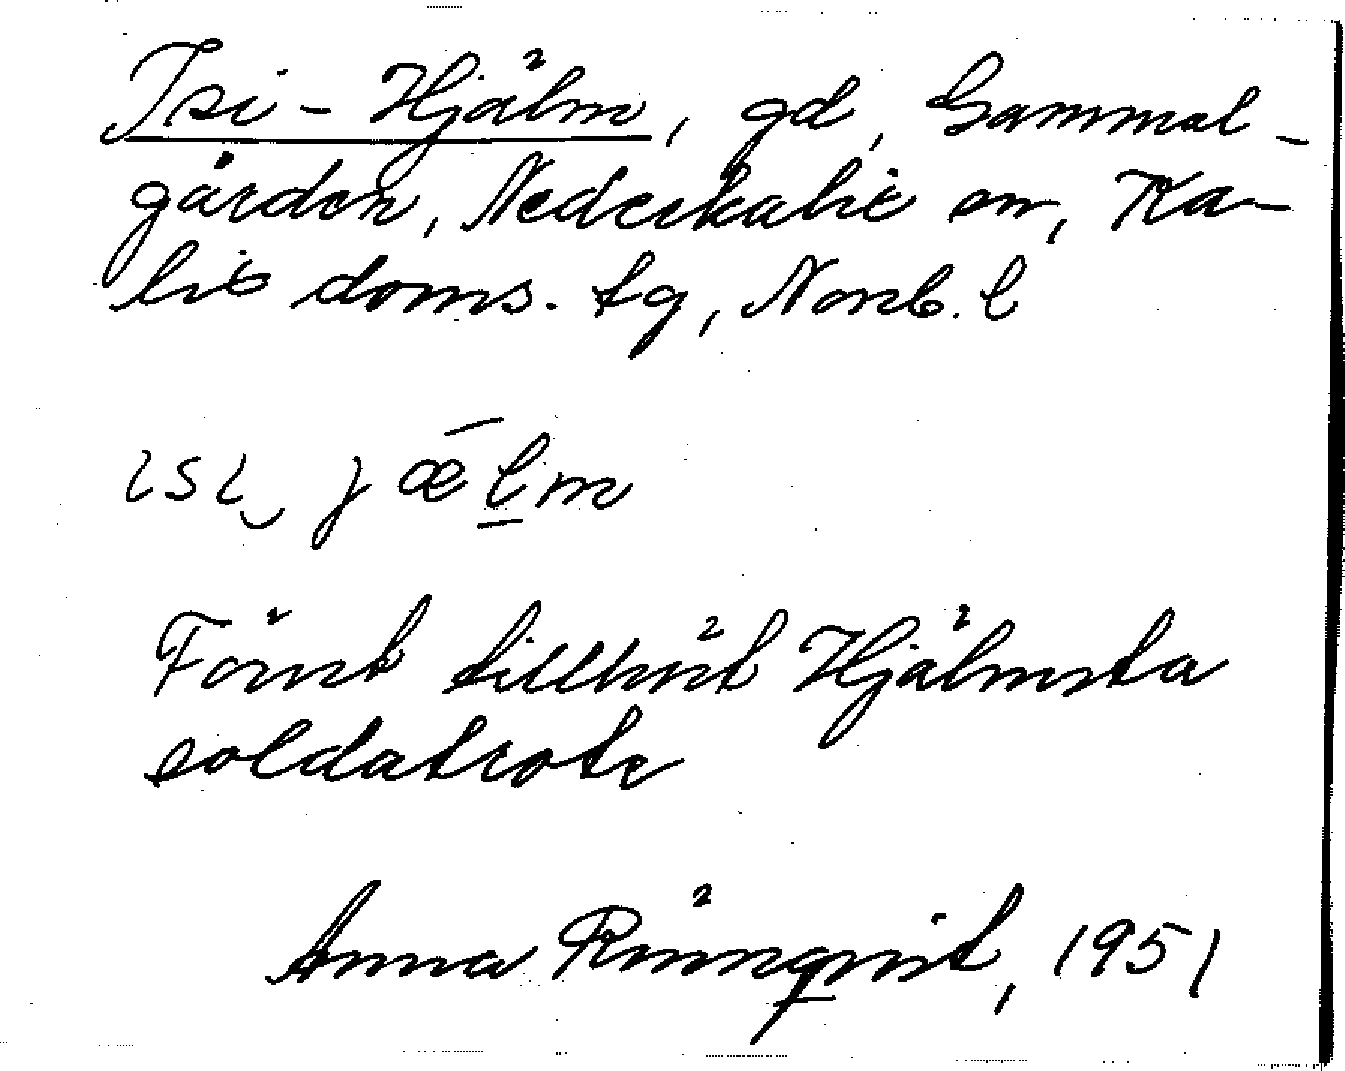 Isi-Hjälm, gd, Gammel-
gården, Nederkalix sn, Ka-
lix doms. tg, Norrb. l
ɩsɩ‿ jæ̅l̠m
Förut tillhört Hjälmsta
soldatrote
Anna Rönnqvist, 1951